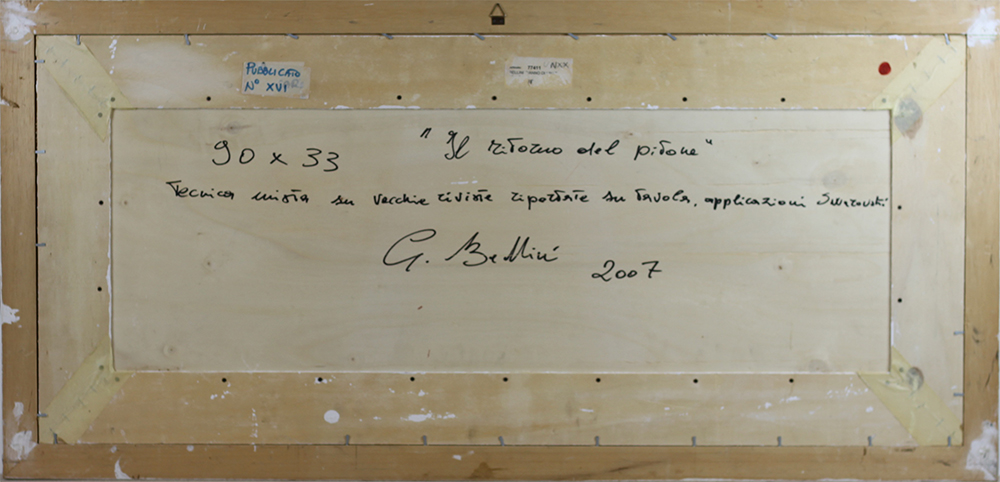 PUBBLICATO
N° XVI
NXX
90 x 33
"Il ritorno del pitone"
Tecnica mista su vecchie riviste riportate su tavola, applicazioni Swarovski
G. Bellini
2007